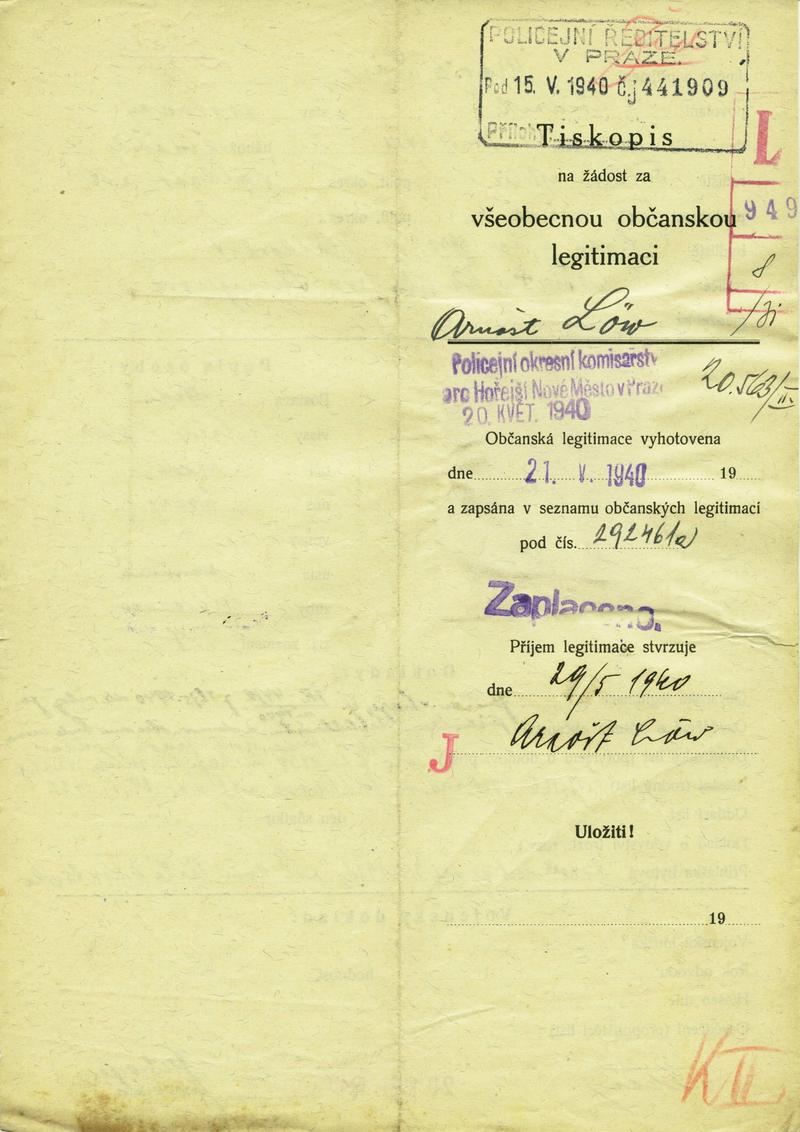 POLICEJNÍ ŘEDITELSTVÍ
V PRAZE.
Pod 15. V. 1940 č.j 441909
Příloh
L
Tiskopis
na žádost za
všeobecnou občanskou
949
legitimaci
8
Arnošt Löw
Policejní okresní komisařstv
pro Hořejší Nové Město v Praze
20.563/II.
20. KVĚT. 1940
Občanská legitimace vyhotovena
dne 21. V. 1940 19
a zapsána v seznamu občanských legitimací
pod čís. 292461a
Zaplaceno.
Příjem legitimace stvrzuje
dne 29/5 1940
Arnošt Löw
J
Uložiti!
19
K II